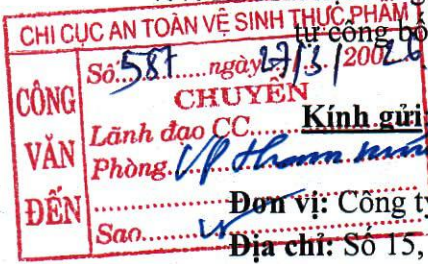 CHI CỤC AN TOÀN VỆ SINH THỰC PHẨM
tự công bố
CÔNG VĂN ĐẾN
Số 587 ngày 27/3/20020
CHUYỂN
Lãnh đạo CC
Kính gửi
Phòng VP
Đơn vị: Công ty
Sao
Địa chỉ: Số 15,